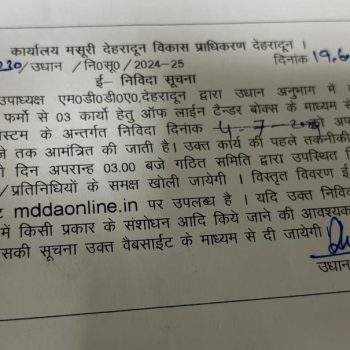 कार्यालय मसूरी देहरादून विकास प्राधिकरण देहरादून ।
230/उधान /नि०सू०/2024-25 दिनांक 19.6
ई– निविदा सूचना
उपाध्यक्ष एम0डी0डी0ए0,देहरादून द्वारा उधान अनुभाग में
फर्मो से 03 कार्य हेतु ऑफ लाईन टैन्डर बोक्स के माध्यम से
स्टम के अन्तर्गत निविदा दिनांक 4-7-2024 को अप
जे तक आमंत्रित की जाती है। उक्त कार्य की पहले तकनीकी
ो दिन अपरान्ह 03.00 बजे गठित समिति द्वारा उपस्थित
/प्रतिनिधियों के समक्ष खोली जायेगी । विस्तृत विवरण ई
mddaonline.in पर उपलब्ध है । यदि उक्त निवि
में किसी प्रकार के संशोधन आदि किये जाने की आवश्यक
सकी सूचना उक्त वैबसाईट के माध्यम से दी जायेगी।
उधान